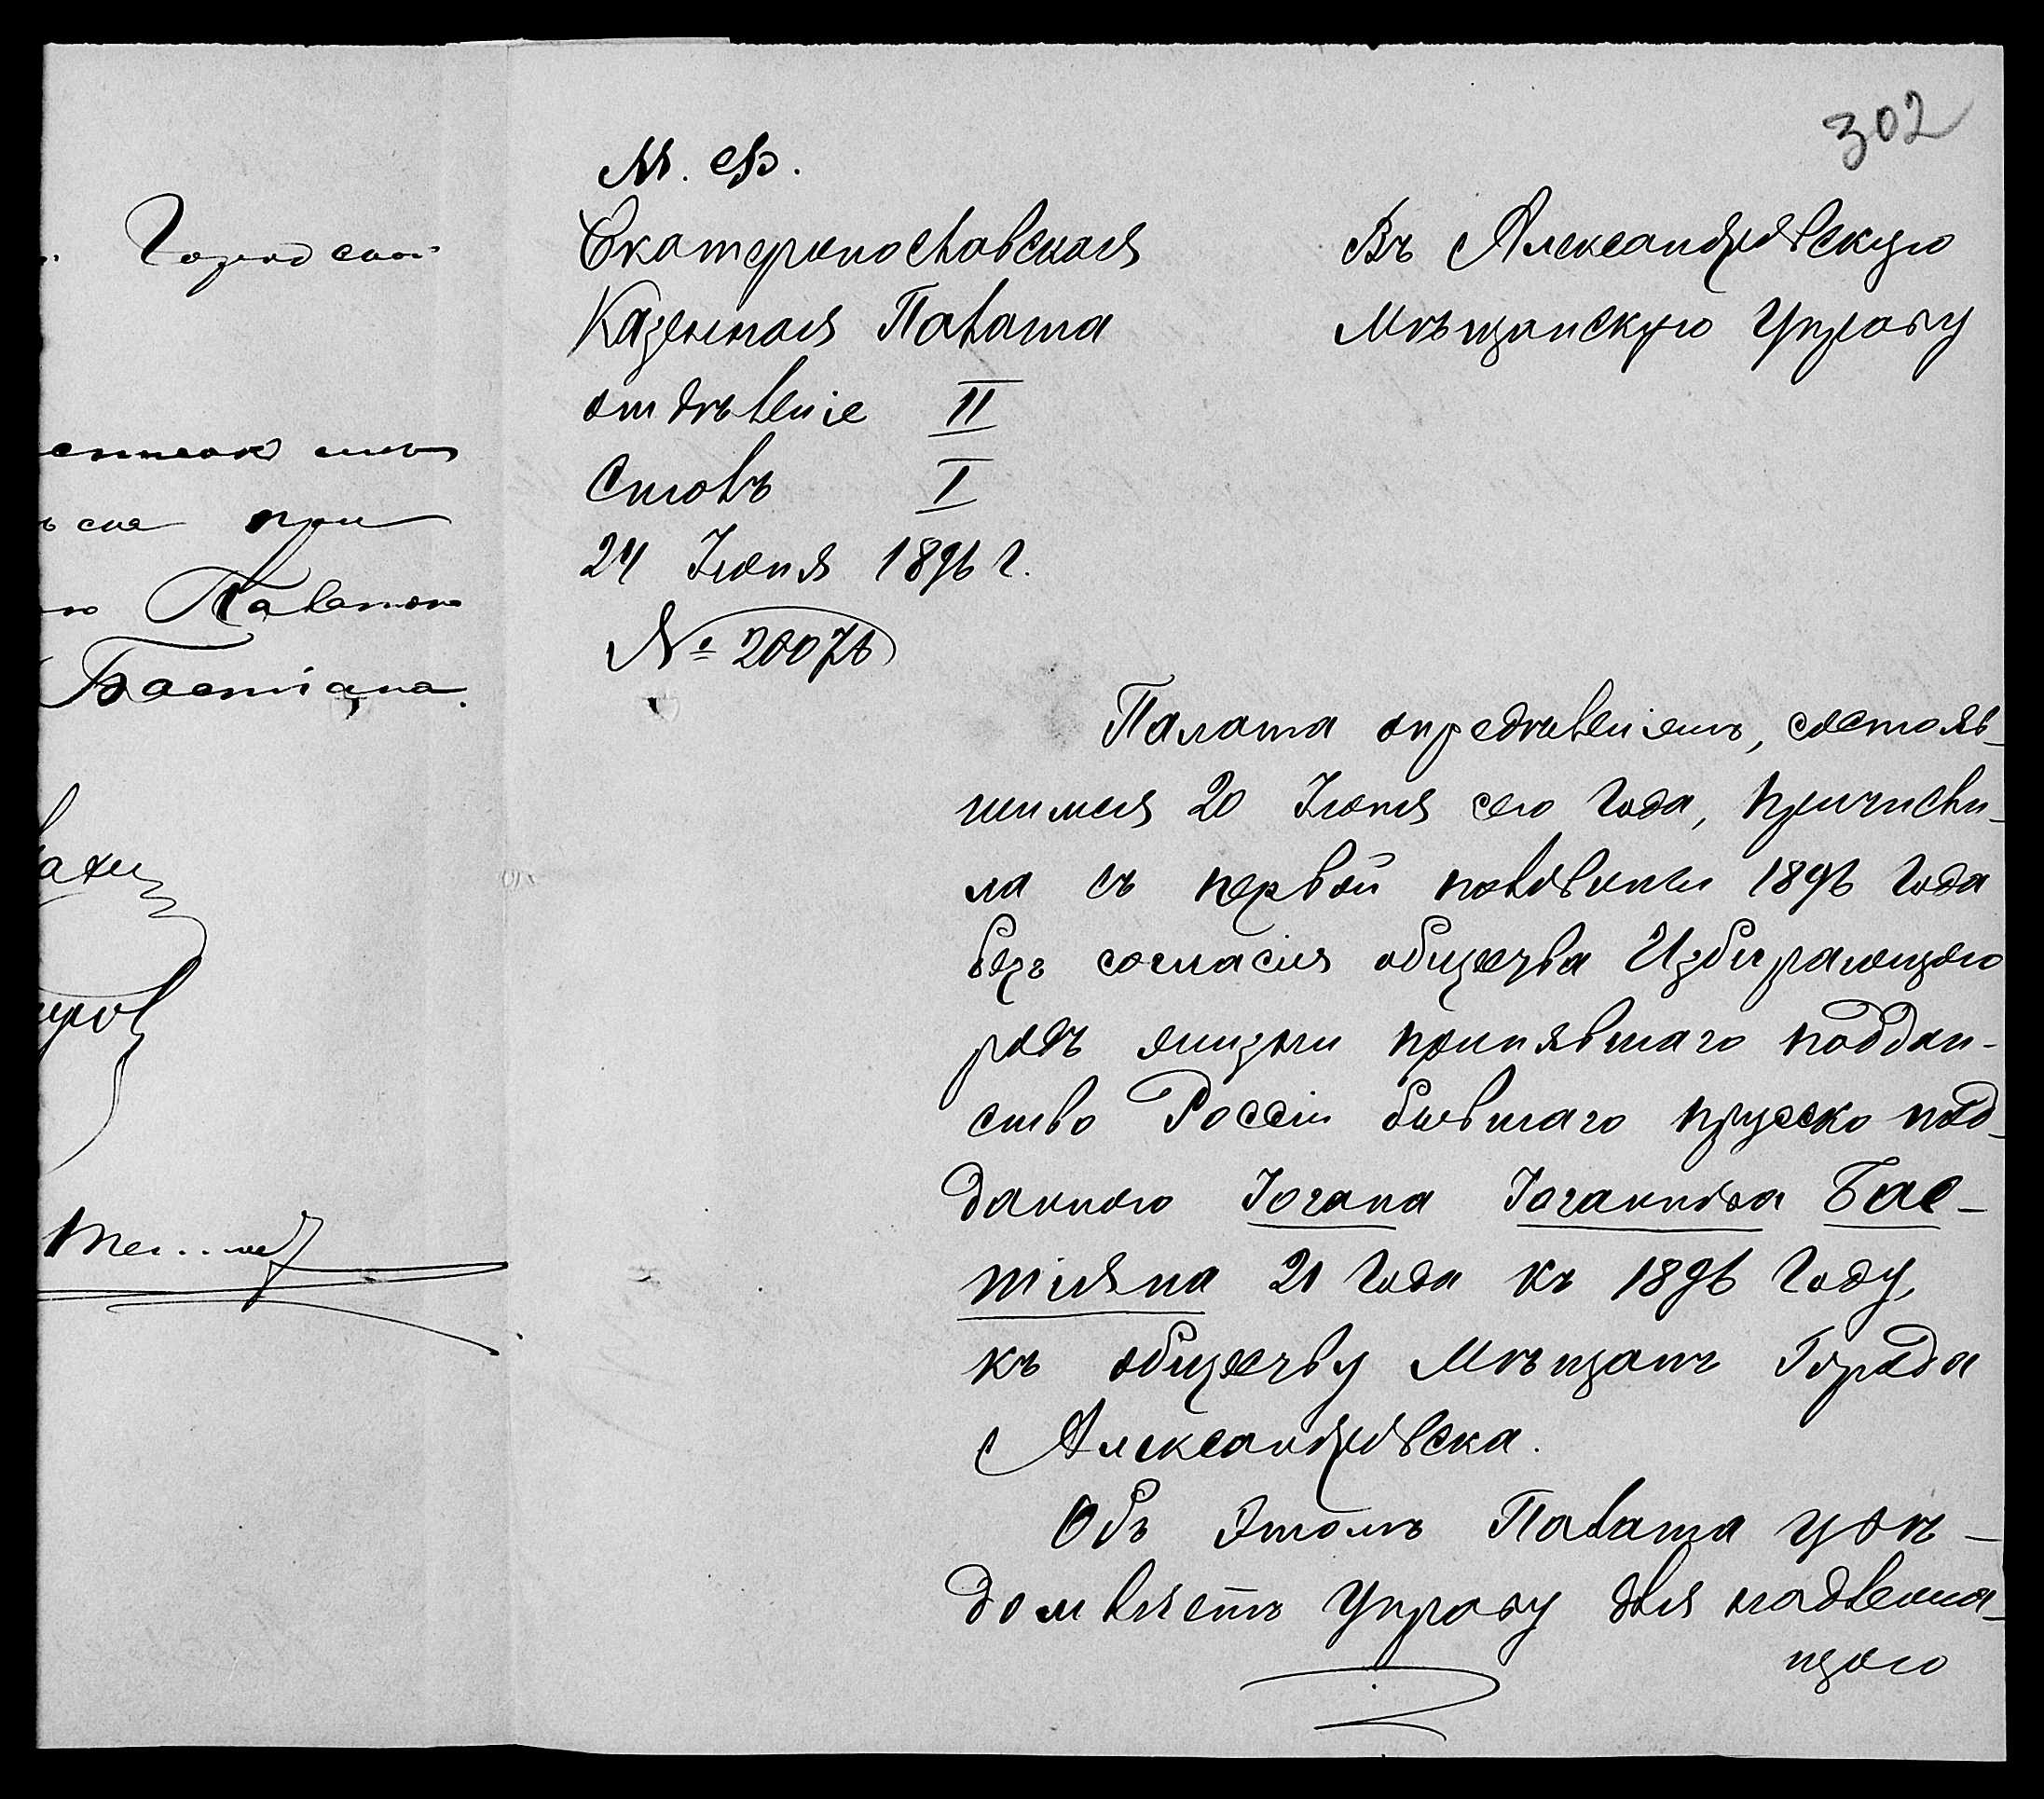 302
М. Ф.
Екатеринославская
Казенная Палата
отдѣленіе II
Столъ I
24 Іюня 1896 г.
№ 20076
Въ Александровскую
Мѣщанскую Управу
Палата опредѣленіемъ, состояв-
шимся 20 Іюня сего года, причисли-
ла съ первой половины 1896 года
безъ согласія общества Избирающаго
родъ жизни принявшаго поддан-
ство Россіи бывшаго прусско под-
даннаго Іогана Іоганнова Бас-
тіяна 21 года къ 1896 году,
къ обществу Мѣщанъ Города
Александровска.
Объ этомъ Палата увѣ-
домляетъ Управу для надлежа-
щаго
Городской
при
Палатою
Бастіана.